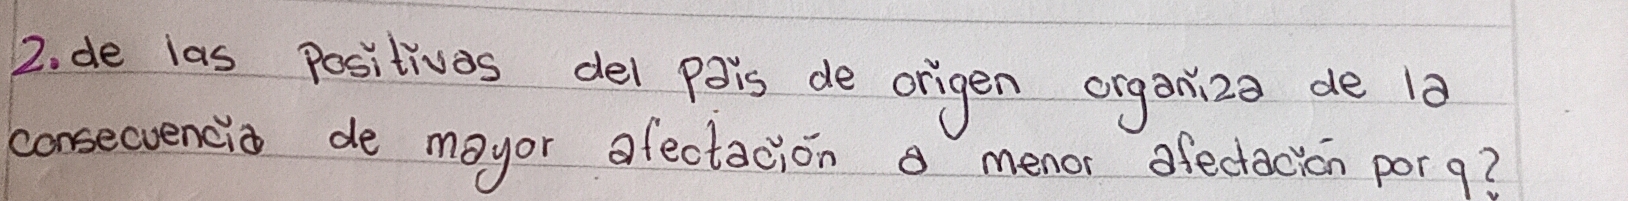 2. de las Positivas del país de origen organiza de la
consecuencia de mayor afectación a menor afectación por q?